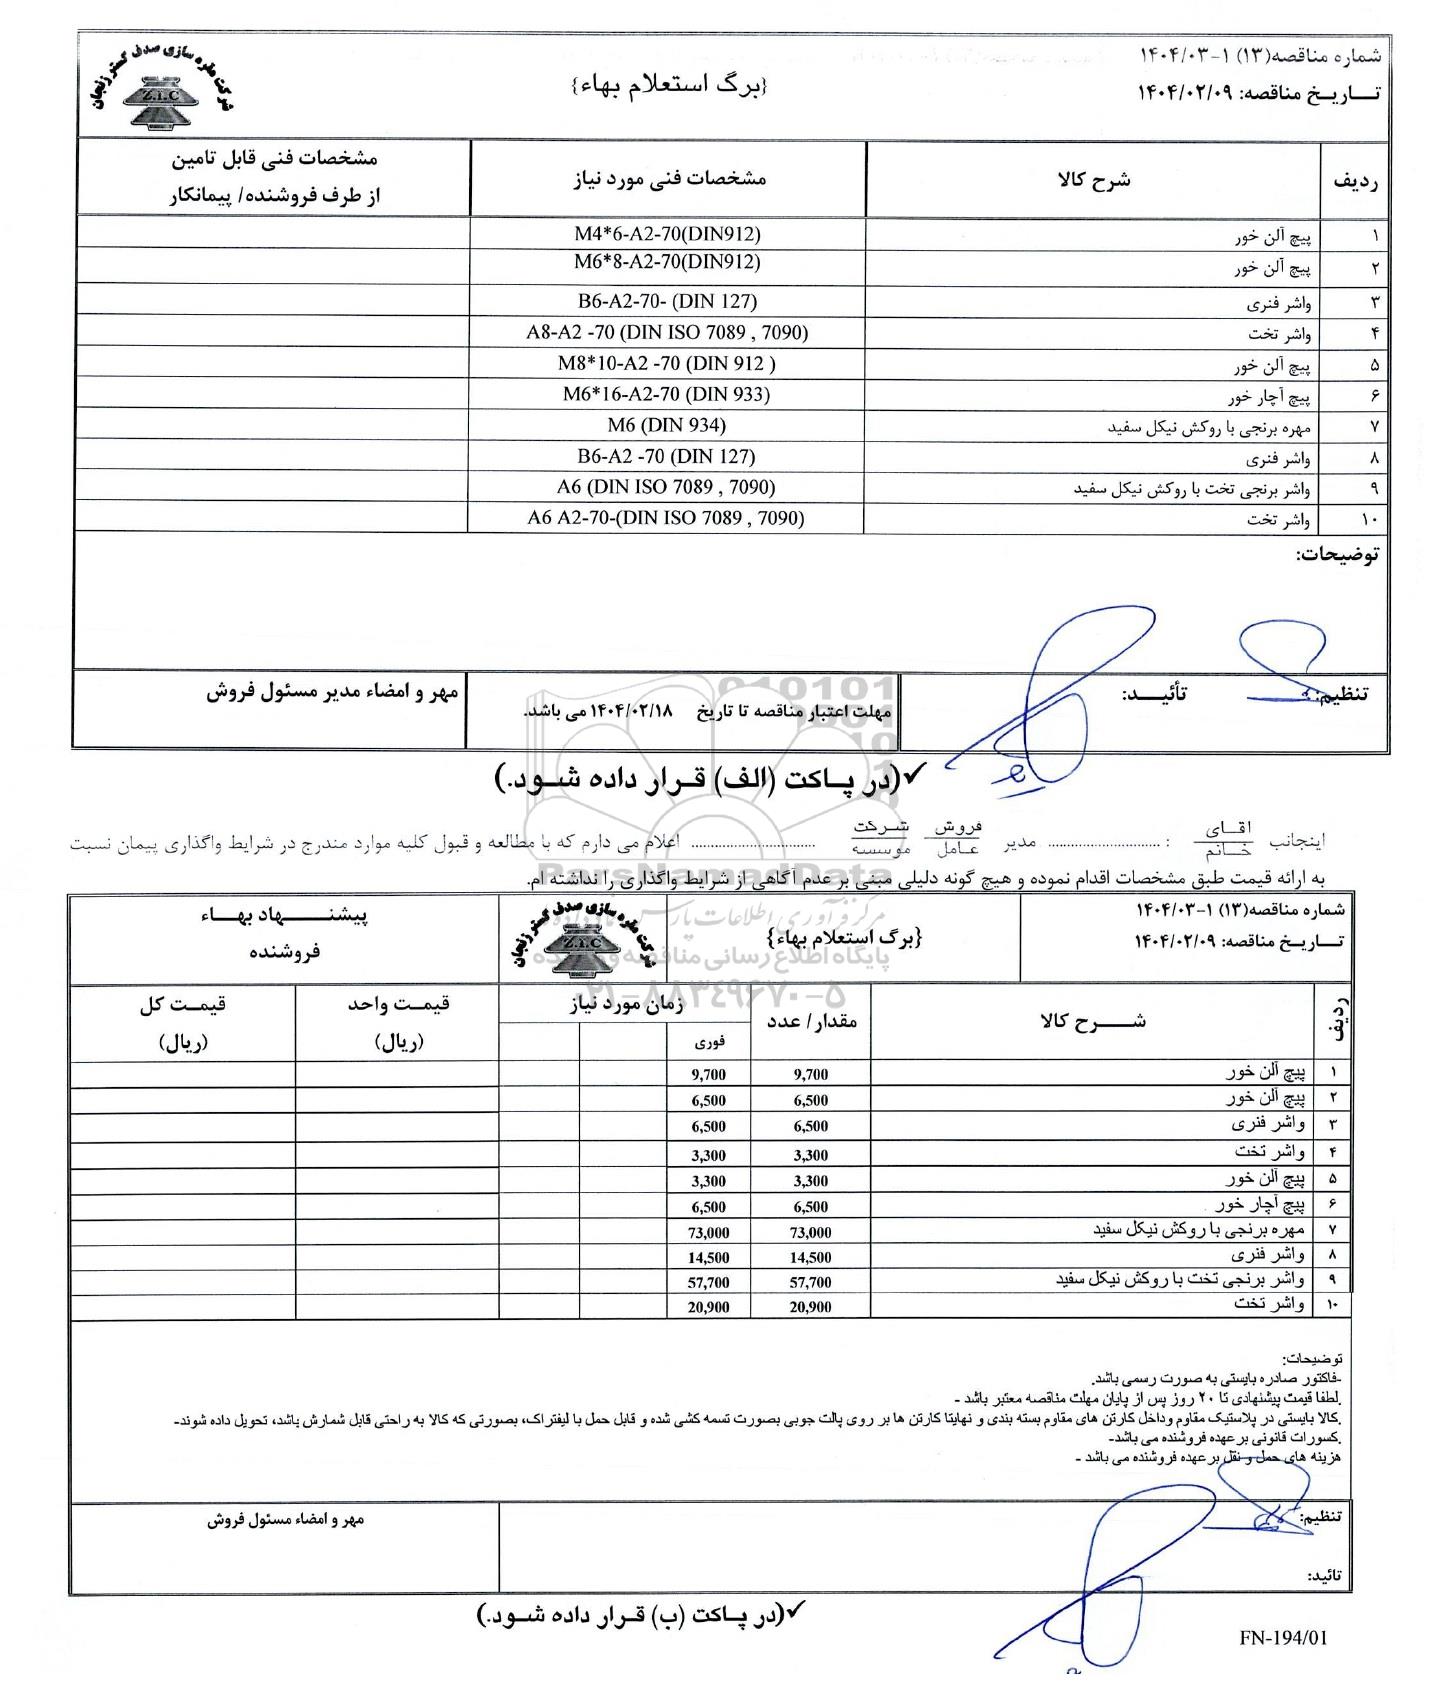 شماره مناقصه(۱۳) ۱-۱۴۰۴/۰۳
تـــاریــخ مناقصه: ۱۴۰۴/۰۲/۰۹
{برگ استعلام بهاء}
شرکت مقره سازی صدف گستر زنجان
Z.I.C
ردیف | شرح کالا | مشخصات فنی مورد نیاز | مشخصات فنی قابل تامین از طرف فروشنده/ پیمانکار
۱ پیچ آلن خور M4*6-A2-70(DIN912)
۲ پیچ آلن خور M6*8-A2-70(DIN912)
۳ واشر فنری B6-A2-70- (DIN 127)
۴ واشر تخت A8-A2 -70 (DIN ISO 7089 , 7090)
۵ پیچ آلن خور M8*10-A2 -70 (DIN 912 )
۶ پیچ آچار خور M6*16-A2-70 (DIN 933)
۷ مهره برنجی با روکش نیکل سفید M6 (DIN 934)
۸ واشر فنری B6-A2 -70 (DIN 127)
۹ واشر برنجی تخت با روکش نیکل سفید A6 (DIN ISO 7089 , 7090)
۱۰ واشر تخت A6 A2-70-(DIN ISO 7089 , 7090)
توضیحات:
تنظیم: تأئیــــد: مهلت اعتبار مناقصه تا تاریخ ۱۴۰۴/۰۲/۱۸ می باشد. مهر و امضاء مدیر مسئول فروش
✓(در پــاکت (الف) قــرار داده شــود.)
اینجانب اقــای خــانم : ............................ مدیر فروش عامل شرکت موسسه ............................... اعلام می دارم که با مطالعه و قبول کلیه موارد مندرج در شرایط واگذاری پیمان نسبت
به ارائه قیمت طبق مشخصات اقدام نموده و هیچ گونه دلیلی مبنی بر عدم آگاهی از شرایط واگذاری را نداشته ام.
ParsNamadData
مرکز فرآوری اطلاعات پارس نماد داده
پایگاه اطلاع رسانی مناقصه و مزایده
۰۲۱-۸۸۳۴۹۶۷۰-۵
شماره مناقصه(۱۳) ۱-۱۴۰۴/۰۳
تـــاریــخ مناقصه: ۱۴۰۴/۰۲/۰۹
{برگ استعلام بهاء}
شرکت مقره سازی صدف گستر زنجان
Z.I.C
پیشنــــــهاد بهـــاء
فروشنده
ردیف | شــــرح کالا | مقدار/ عدد | زمان مورد نیاز | قیمــت واحد (ریال) | قیمــت کل (ریال)
فوری
۱ پیچ آلن خور 9,700 9,700
۲ پیچ آلن خور 6,500 6,500
۳ واشر فنری 6,500 6,500
۴ واشر تخت 3,300 3,300
۵ پیچ آلن خور 3,300 3,300
۶ پیچ آچار خور 6,500 6,500
۷ مهره برنجی با روکش نیکل سفید 73,000 73,000
۸ واشر فنری 14,500 14,500
۹ واشر برنجی تخت با روکش نیکل سفید 57,700 57,700
۱۰ واشر تخت 20,900 20,900
توضیحات:
-فاکتور صادره بایستی به صورت رسمی باشد.
.لطفا قیمت پیشنهادی تا ۲۰ روز پس از پایان مهلت مناقصه معتبر باشد -
.کالا بایستی در پلاستیک مقاوم وداخل کارتن های مقاوم بسته بندی و نهایتا کارتن ها بر روی پالت جوبی بصورت تسمه کشی شده و قابل حمل با لیفتراک، بصورتی که کالا به راحتی قابل شمارش باشد، تحویل داده شوند-
.کسورات قانونی بر عهده فروشنده می باشد-
هزینه های حمل و نقل بر عهده فروشنده می باشد -
تنظیم:
مهر و امضاء مسئول فروش
تائید:
✓(در پــاکت (ب) قــرار داده شــود.)
FN-194/01